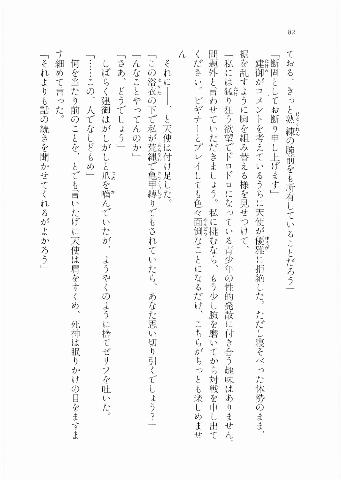 82
ておる。きっと熟練の腕前をも所有していることだろう」
「断固としてお断り申し上げます」
建御がコメントを考えているうちに天使が優雅に拒絶した。ただし寝そべった体勢のまま、
裾を乱すように脚を組み替える様を見せつけて、
「私には猛り狂う欲望でドロドロになっている青少年の性的発散に付き合う趣味はありません。
問題外と言わせていただきましょう。私に挑むなら、もう少し腕を磨いてから対戦を申し出て
ください。ビギナーとプレイしても色々面倒なことになるだけ、こちらがちっとも楽しめませ
ん
それに――、と天使は付け足した。
「この浴衣の下で私が荒縄で亀甲縛りでもされていたら、あなた思い切り引くでしょう？」
「んなことやってんのか」
「さあ、どうでしょう」
しばらく建御はがしがしと爪を噛んでいたが、ようやくのように捨てゼリフを吐いた。
「……この、人でなしどもめ」
何を当たり前のことを、とでも言いたげに天使は肩をすくめ、死神は眠りかけの目をますま
す細めて言った。
「それよりも話の続きを聞かせてくれるがよかろう」